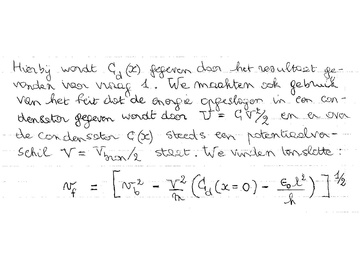 Hierbij wordt C_d(x) gegeven door het resultaat ge-
vonden voor vraag 1. We maakten ook gebruik
van het feit dat de energie opgeslagen in een con-
densator gegeven wordt door U = CV²/2 en er over
de condensator C(x) steeds een potentiaalver-
schil V = V_bron/2 staat. We vinden tenslotte:
v_f = [v_b² - V²/m (C_d(x=0) - ε₀l²/h)]^1/2